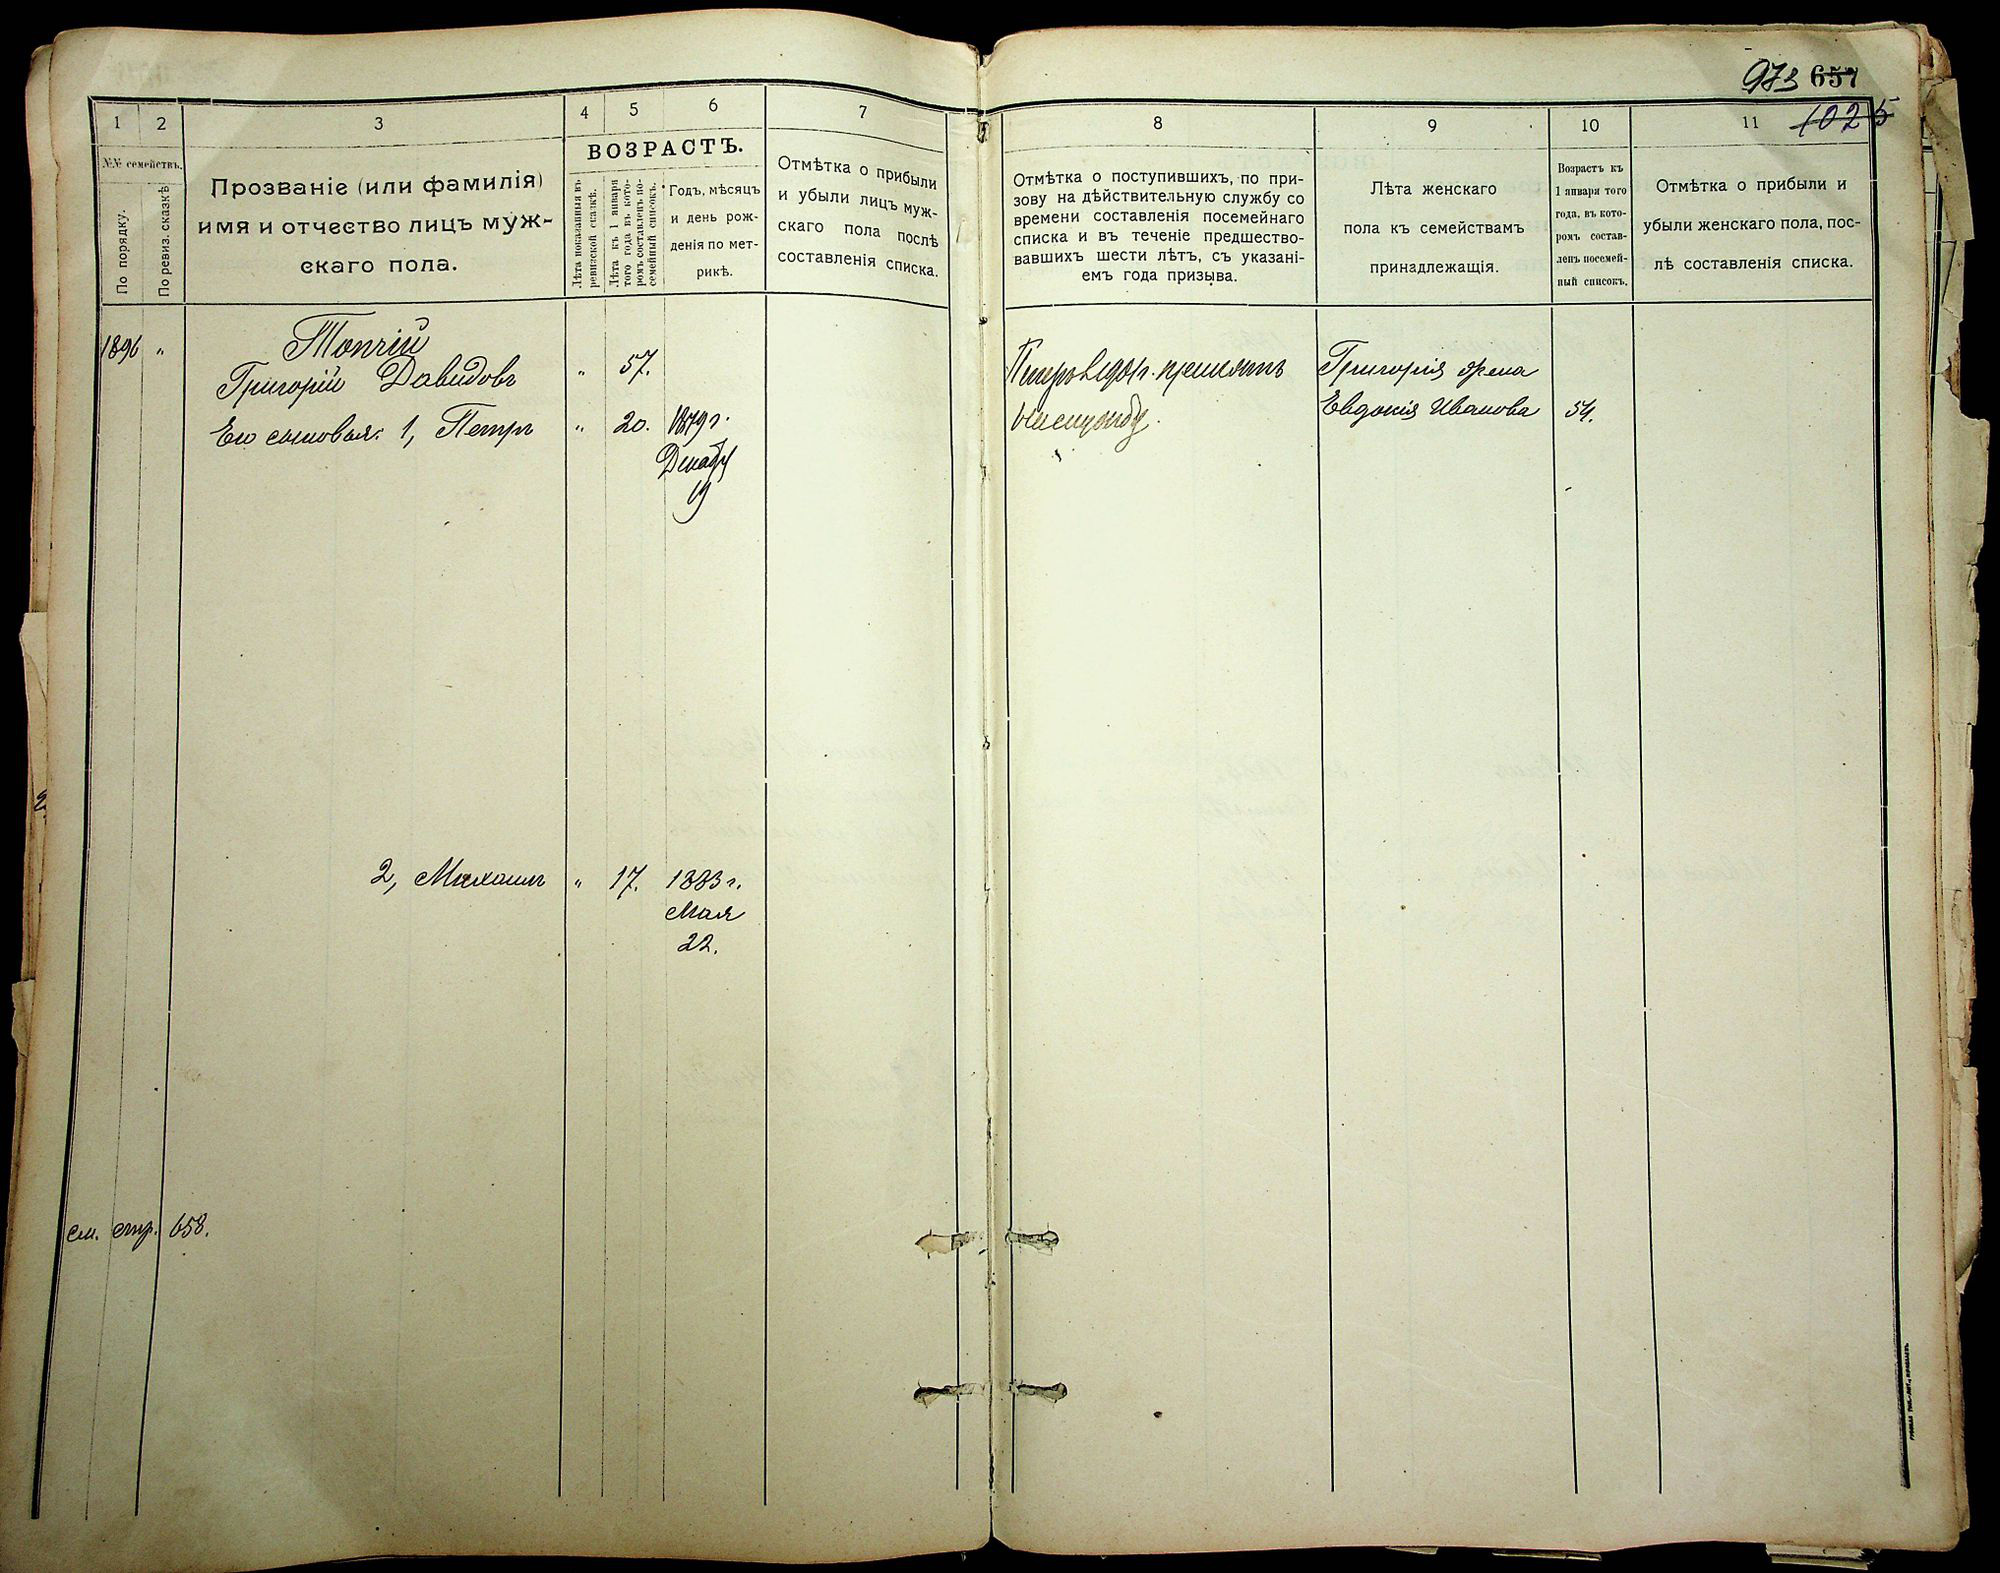 973 657
1025
1
2
3
4
5
6
7
№№ семействъ.
По порядку.
По ревиз. сказкѣ
Прозваніе (или фамилія)
имя и отчество лицъ муж-
скаго пола.
ВОЗРАСТЪ.
Лѣта показанныя въ
ревизской сказкѣ.
Лѣта къ 1 января
того года въ кото-
ромъ составленъ по-
семейный списокъ.
Годъ, мѣсяцъ
и день рож-
денія по мет-
рикѣ.
Отмѣтка о прибыли
и убыли лицъ муж-
скаго пола послѣ
составленія списка.
8
9
10
11
Отмѣтка о поступившихъ, по при-
зову на дѣйствительную службу со
времени составленія посемейнаго
списка и въ теченіе предшество-
вавшихъ шести лѣтъ, съ указані-
емъ года призыва.
Лѣта женскаго
пола къ семействамъ
принадлежащія.
Возрастъ къ
1 января того
года, въ кото-
ромъ состав-
ленъ посемей-
ный списокъ.
Отмѣтка о прибыли и
убыли женскаго пола, пос-
лѣ составленія списка.
1896 "
Топчій
Григорій Давидовъ " 57.
Его сыновья: 1, Петръ " 20. 1879 г.
Декабр
19
2, Михаилъ " 17. 1883 г.
Мая
22.
см. стр. 658.
Петръ въ 1901 г. принятъ
Григорія жена
Евдокія Иванова 54.